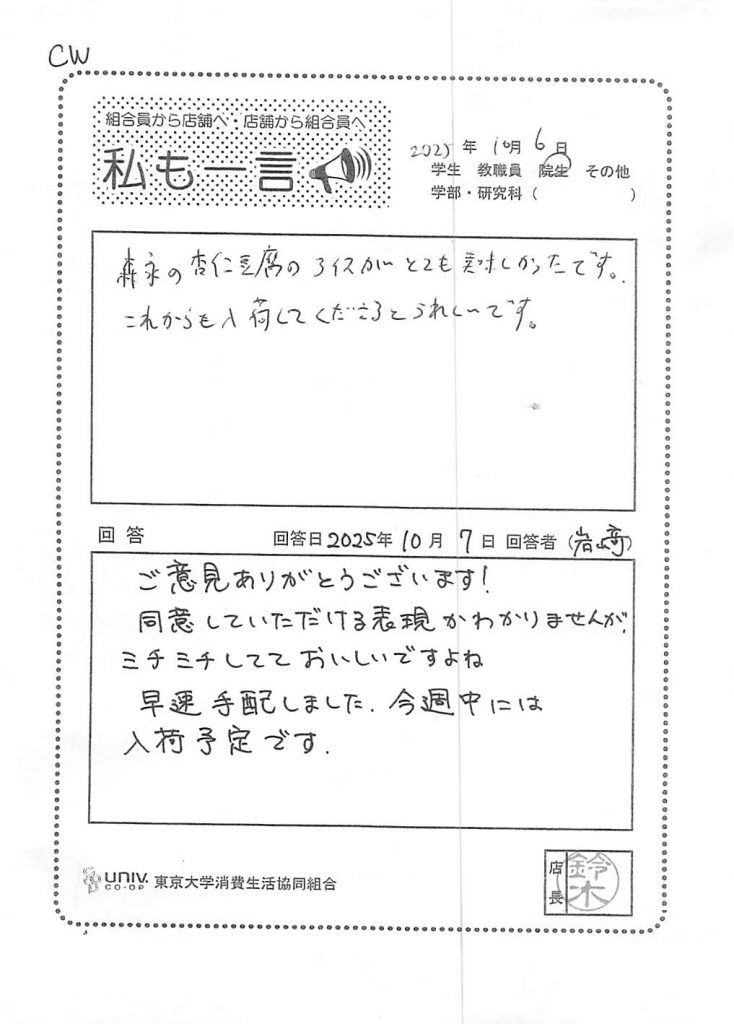 CW
組合員から店舗へ・店舗から組合員へ
私も一言
2025年10月6日
学生 教職員 院生 その他
学部・研究科( )
森永の杏仁豆腐のアイスがとても美味しかったです。
これからも入荷してくださるとうれしいです。
回答 回答日2025年10月7日 回答者(岩崎)
ご意見ありがとうございます!
同意していただける表現かわかりませんが、
ミチミチしてておいしいですよね
早速手配しました.今週中には
入荷予定です.
UNIV. CO-OP 東京大学消費生活協同組合
店長 鈴木